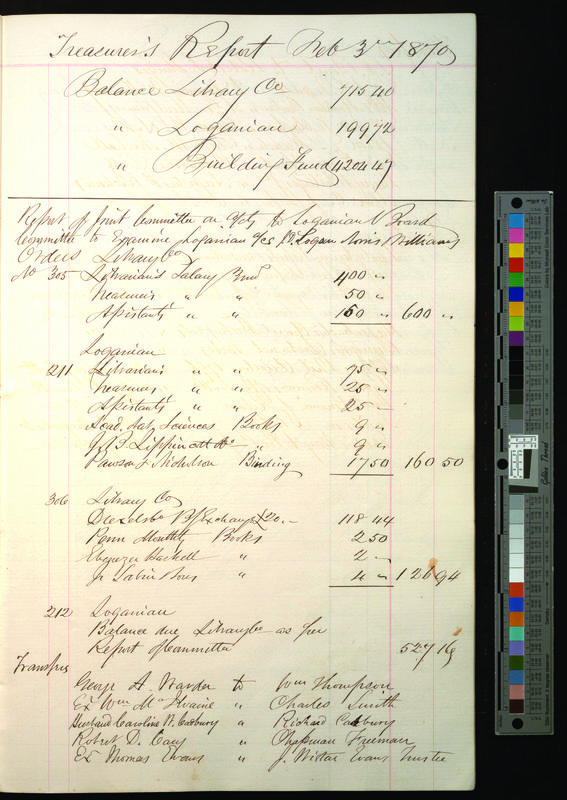 Treasurer's Report Feb 3rd 1870
Balance Library Co 715 40
" Loganian 199 72
" Building Fund 11204 47
Report of Joint Committee on a/cts to Loganian Board
Committee to Examine Loganian a/cs Dr. Logan Norris Williams
Orders Library Co
No 305 Librarian's Salary 3 mo 400 "
Treasurer's " " 50 "
Assistants " " 150 " 600 "
Loganian
211 Librarian's " " 75 "
Treasurers " " 25 "
Assistants " " 25 "
Acad. Nat. Sciences Books 9 "
J. B. Lippincott & Co " 9 "
Pawson & Nicholson Binding 17 50 160 50
306 Library Co
Drexel & Co B/Exchange £20.– 118 44
Penn Monthly Books 2 50
Ebenezer Hackett " 2 "
J. Sabin & Sons " 4 " 126 94
212 Loganian
Balance due Library Co as per
Report of Committee 527 16
Transfers
George A. Warder to Wm Thompson
Ex Wm McIlvaine " Charles Smith
Husband Caroline W. Cadbury " Richard Cadbury
Robert D. Cary " Chapman Freeman
Ex Thomas Evans " J. Wistar Evans Trustee